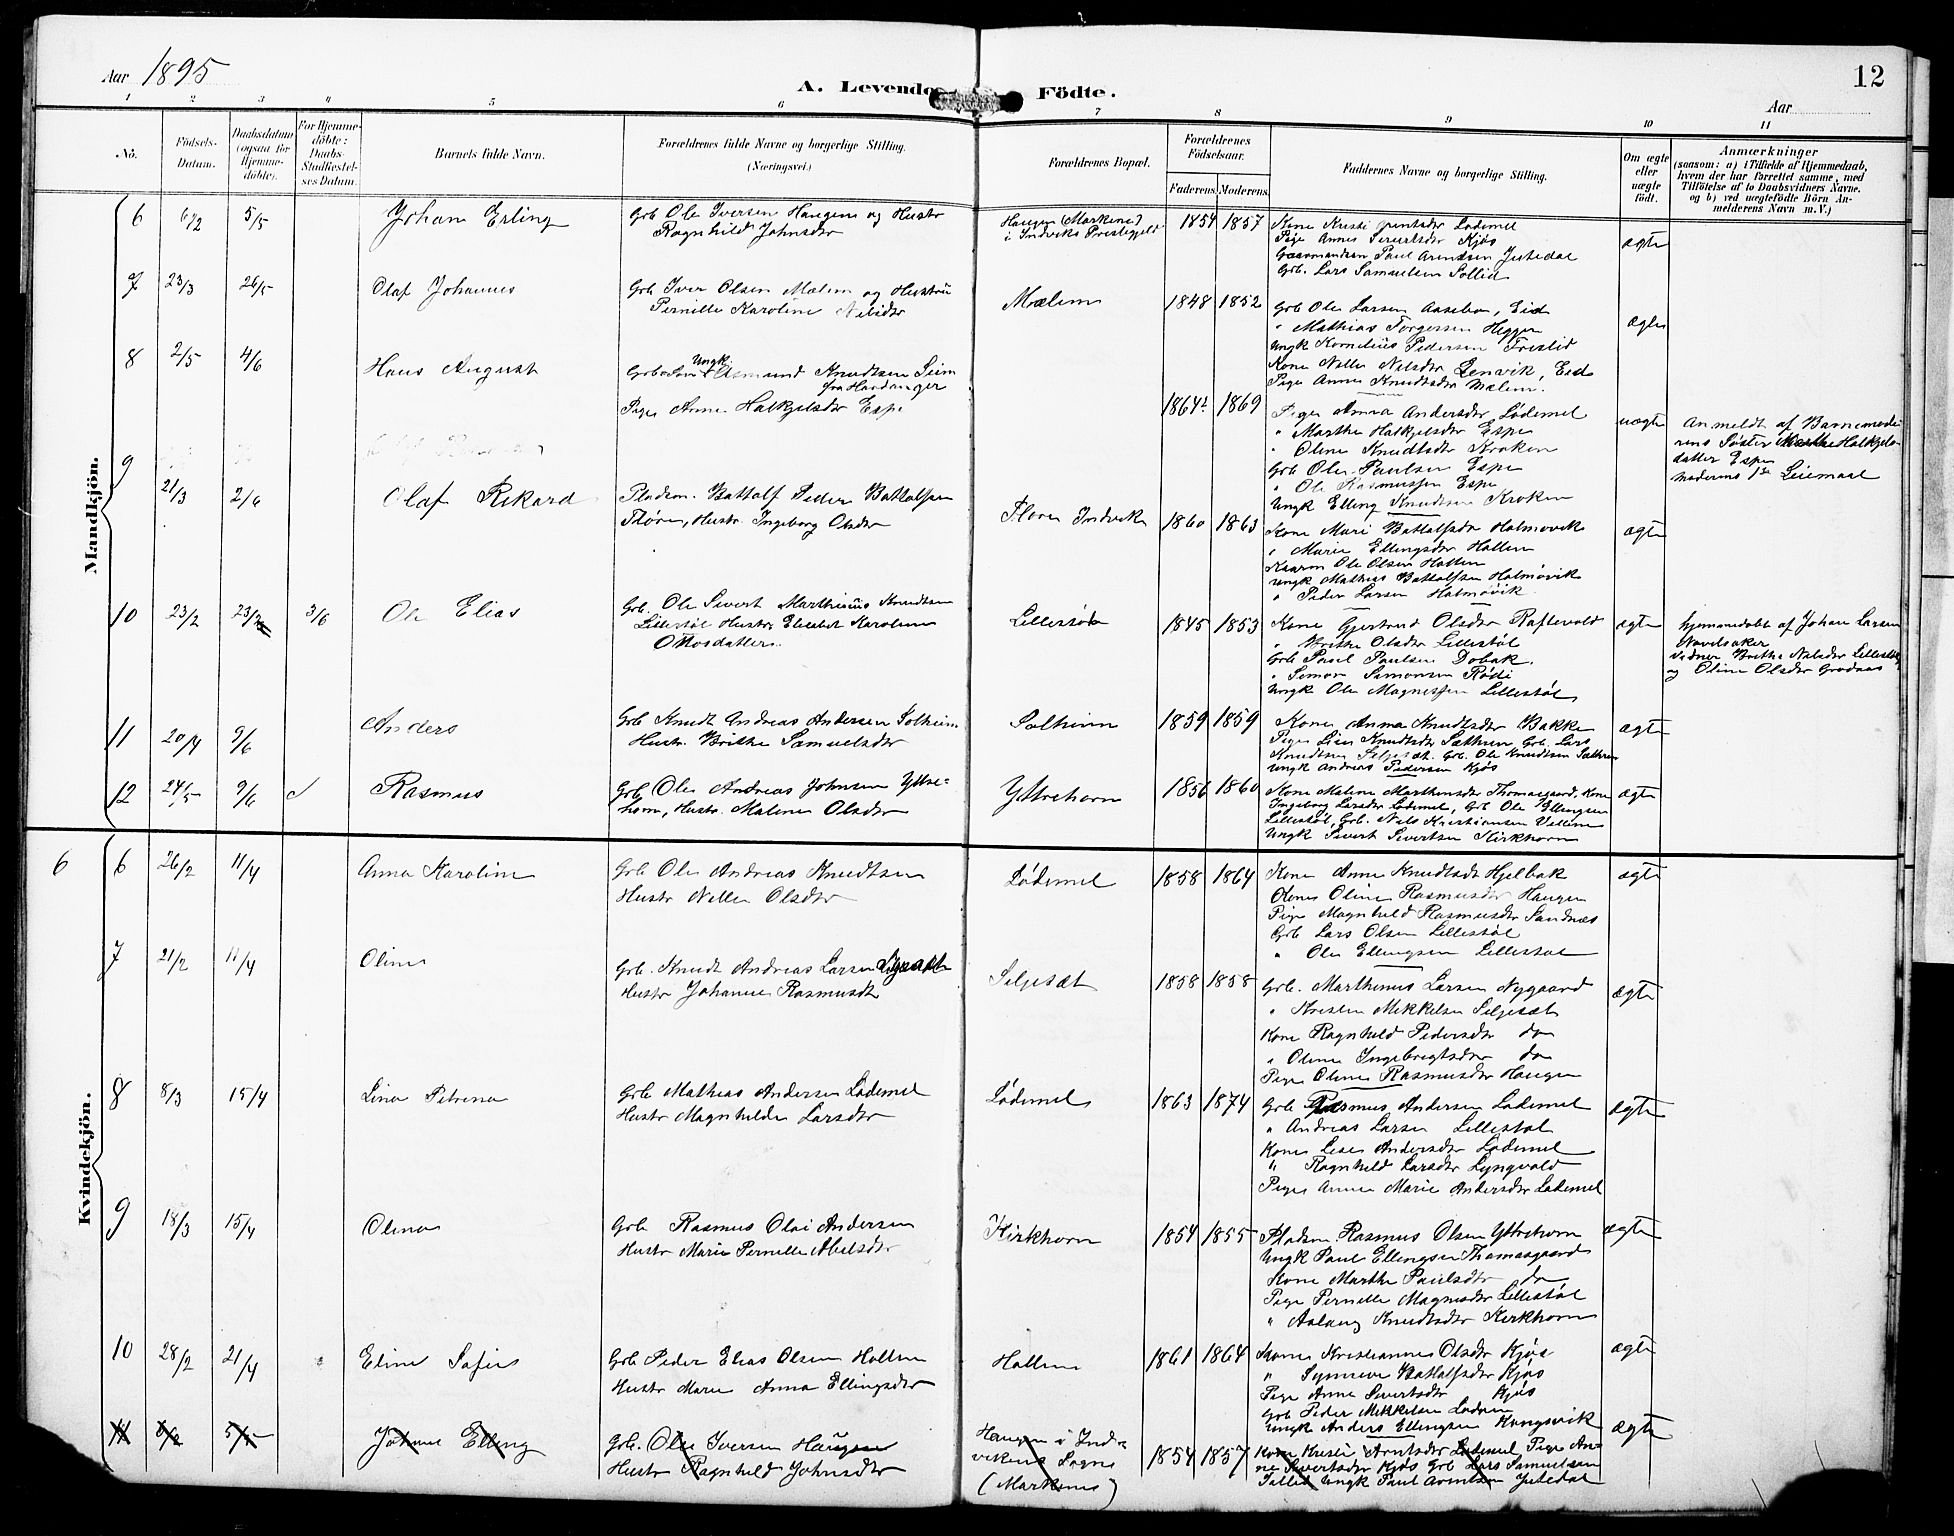 Aar 1895
A. Levende Födte.
12
Aar
1 2 3 4 5 6 7 8 9 10 11
No.
Födsels-Datum.
Daabsdatum (ogsaa for Hjemme-döbte).
For Hjemme-döbte: Daabs-Stadfæstel-ses Datum.
Barnets fulde Navn.
Forældrenes fulde Navne og borgerlige Stilling. (Næringsvei.)
Forældrenes Bopæl.
Forældrenes Födselsaar.
Faderens. Moderens.
Faddernes Navne og borgerlige Stilling.
Om ægte eller uægte födt.
Anmærkninger
(saasom: a) i Tilfælde af Hjemmedaab,
hvem der har forrettet samme, med
Tilföielse af to Daabsvidners Navne.
og b) ved uægtefödte Börn An-
melderens Navn m. V.)
Mandkjön.
6 6/2 5/5 Johan Erling
Grb Ole Iversen Haugen og Hustr
Ragnhild Johnsdtr
Haugen (Markene)
i Indviks Prestegjeld
1854 1857
Kone Kristi Arntsdtr Lødemel
Pige Anne Sivertsdtr Kjøs
Gaardmandsøn Paul Arentsen Jutedal
Grb. Lars Samuelsen Sollid
ægte
7 23/3 26/5 Olaf Johannes
Grb Iver Olsen Mælem og Hustru
Pernille Karoline Nilsdtr
Mælem
1848 1852
Grb Ole Larsen Aasebø, Eid
" Mathias Torgersen Heggen
Ungk Kornelius Pedersen Freslid
Kone Nelle Nilsdtr Lenvik, Eid
Pige Anne Knudtsdtr Mælem.
ægte
8 2/5 4/6 Hans August
Ungk.
Grbsøn Asmund Knudtsen Seim
fra Hardanger
Pige Anne Halkjelsdtr Espe
1864? 1869
Pige Anna Andersdtr Lødemel
" Marthe Halkjelsdtr Espe
" Oline Knudtsdtr Kroken
Grb Ole Paulsen Espe
" Ole Rasmussen Espe
Ungk Elling Knudtsen Kroken
uægte
Anmeldt af Barnemode-
rens Søster Marthe Halkjels-
datter Espe
Moderens 1ste Leiermaal
9 21/3 2/6 Olaf Rikard
Pladsm. Battalf Peder Battalfsen
Floren, Hustr. Ingeborg Olsdtr
Floren Indvik
1860 1863
Kone Mari Battalfsdtr Holmøvik
" Marie Ellingsdtr Hallem
Ole Olsen Hallem
Ungk Mathias Battalfsen Holmøvik
" Peder Larsen Holmøvik
ægte
10 23/2 23/2 3/6 Ole Elias
Grb. Ole Sivert Marthinius Knudtsen
Lillestøl Hustr. Elisabet Karoline
Ottosdatter
Lillestøl
1845 1853
Kone Gjertrud Olsdtr Raftevold
" Brithe Olsdtr Lillestøl
Grb Paul Paulsen Dobak.
" Simon Simonsen Rødi
Ungk Ole Magnessen Lillestøl
ægte
hjemmedøbt af Johan Larsen
Navelsaker
Vidner Brithe Nilsdtr Lillestøl
og Oline Olsdtr Grodaas
11 20/4 9/6 Anders
Grb Knudt Andreas Andersen Solheim
Hustr. Brithe Samuelsdtr
Solheim
1859 1859
Kone Anna Knudtsdtr Bakke
Pige Lisa Knudtsdtr Sætren Grb. Lars
Knudtsen Seljesæt. Grb. Ole Knudtsen Sætren
Ungk Andreas Pedersen Kjøs
ægte
12 24/5 9/6 Rasmus
Grb Ole Andreas Johnsen Yttre-
horn, Hustr. Maline Olsdtr
Yttrehorn
1856 1860
Kone Maline Marthinsdtr Thomasgaard, Kone
Ingeborg Larsdtr Lødemel, Grb Ole Ellingsen
Lillestøl, Grb. Nils Kristiansen Vellem
Ungk Sivert Sivertsen Kirkhorn
ægte
Kvindekjön.
6
6 26/2 11/4 Anna Karoline
Grb Ole Andreas Knudtsen
Hustr Nelle Olsdtr
Lødemel
1858 1864
Kone Anne Knudtsdt Hjelbak
Kone Oline Rasmusdtr Haugen
Pige Magnhild Rasmusdtr Sandnæs
Grb Lars Olsen Lillestøl
" Ole Ellingsen Lillestøl
ægte
7 21/2 11/4 Oline
Grb. Knudt Andreas Larsen
Hustr Johanne Rasmusdt
Seljesæt
1858 1858
Grb. Marthinus Larsen Nygaard
" Kristen Mikkelsen Seljesæt
Kone Ragnhild Pedersdtr do
" Oline Ingebrigtsdtr do
Pige Oline Rasmusdtr Haugen
ægte
8 8/3 15/4 Lina Petrina
Grb Mathias Andersen Lødemel
Hustr Magnhilde Larsdtr
Lødemel
1863 1874
Grb Rasmus Andersen Lødemel
" Andreas Larsen Lillestøl
Kone Lise Andersdtr Lødemel
" Ragnhild Larsdtr Lyngvold
Pige Anne Marie Andersdtr Lødemel
ægte
9 18/3 15/4 Olina
Grb Rasmus Olai Andersen
Hustr Marie Pernille Abelsdtr
Kirkhorn
1854 1855
Pladsm. Rasmus Olsen Yttrehorn
Ungk Paul Ellingsen Thomasgaard
Kone Marthe Paulsdtr do
Pige Pernille Magnesdtr Lillestøl
" Aslaug Knudtsdtr Kirkhorn
ægte
10 28/2 21/4 Eline Sofie
Grb Peder Elias Olsen Hallem
Hustr Marie Anna Ellingsdtr
Hallem
1861 1864
Kone Kristianne Olsdtr Kjøs
" Synneve Battalfsdtr Kjøs
Pige Anne Sivertsdtr Kjøs
Grb Peder Mikkelsen Lødøen
Ungk Anders Ellingsen Kongsvik
ægte
11 6/2 5/5 Johan Elling
Grb. Ole Iversen Haugen
Hustr Ragnhild Johnsdtr
Haugen i Ind-
vikens Sogn
(Markene)
1854 1857
Kone Kristi Arntsdtr Lødemel Pige An-
ne Sivertsdtr Kjøs Grb Lars Samuelsen
Sollid Ungk Paul Arentsen Jutedal
ægte